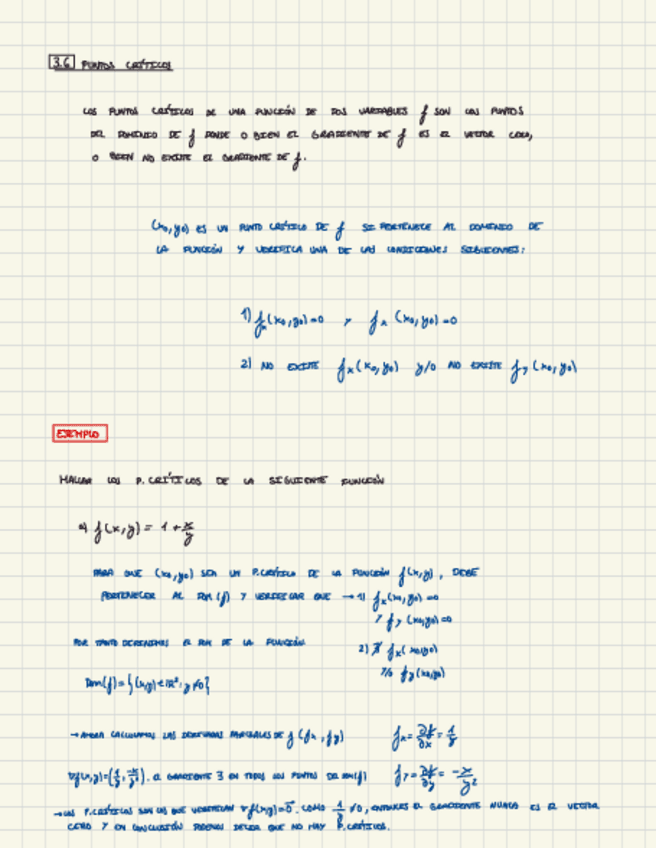 3.6 PUNTOS CRÍTICOS
LOS PUNTOS CRÍTICOS DE UNA FUNCIÓN DE DOS VARIABLES f SON LOS PUNTOS
DEL DOMINIO DE f DONDE O BIEN EL GRADIENTE DE f ES EL VECTOR CERO,
O BIEN NO EXISTE EL GRADIENTE DE f.
(x₀,y₀) ES UN PUNTO CRÍTICO DE f SI PERTENECE AL DOMINIO DE
LA FUNCIÓN Y VERIFICA UNA DE LAS CONDICIONES SIGUIENTES:
1) fₓ(x₀,y₀)=0 y fₓ(x₀,y₀)=0
2) NO EXISTE fₓ(x₀,y₀) y/o NO EXISTE f_y(x₀,y₀)
EJEMPLO
HALLAR LOS P.CRÍTICOS DE LA SIGUIENTE FUNCIÓN
a) f(x,y) = 1 + x/y
PARA QUE (x₀,y₀) SEA UN P.CRÍTICO DE LA FUNCIÓN f(x,y), DEBE
PERTENECER AL Dom(f) Y VERIFICAR QUE → 1) fₓ(x₀,y₀)=0
y f_y(x₀,y₀)=0
POR TANTO DEFINIMOS EL DOM DE LA FUNCIÓN
2) ∄ fₓ(x₀,y₀)
y/o f_y(x₀,y₀)
Dom(f)={(x,y)∈ℝ²: y≠0}
→ AHORA CALCULAMOS LAS DERIVADAS PARCIALES DE f (fₓ, f_y) fₓ = ∂f/∂x = 1/y
∇f(x,y)=(1/y, -x/y²). EL GRADIENTE ∃ EN TODOS LOS PUNTOS DEL Dom(f) f_y = ∂f/∂y = -x/y²
→ LOS P.CRÍTICOS SON LOS QUE VERIFICAN ∇f(x,y)=0⃗. COMO 1/y ≠0, ENTONCES EL GRADIENTE NUNCA ES EL VECTOR
CERO Y EN CONCLUSIÓN PODEMOS DECIR QUE NO HAY P.CRÍTICOS.